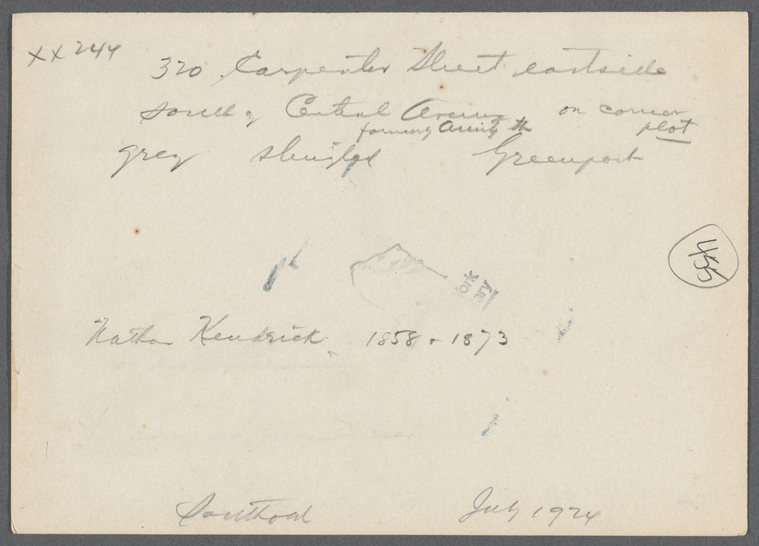 XX244
320 Carpenter Street eastside
south of Central Avenue on corner
formerly Amity St plot
grey shingled Greenport
455
ork
ary
Nathan Kendrick 1858 + 1873
Southold July 1924